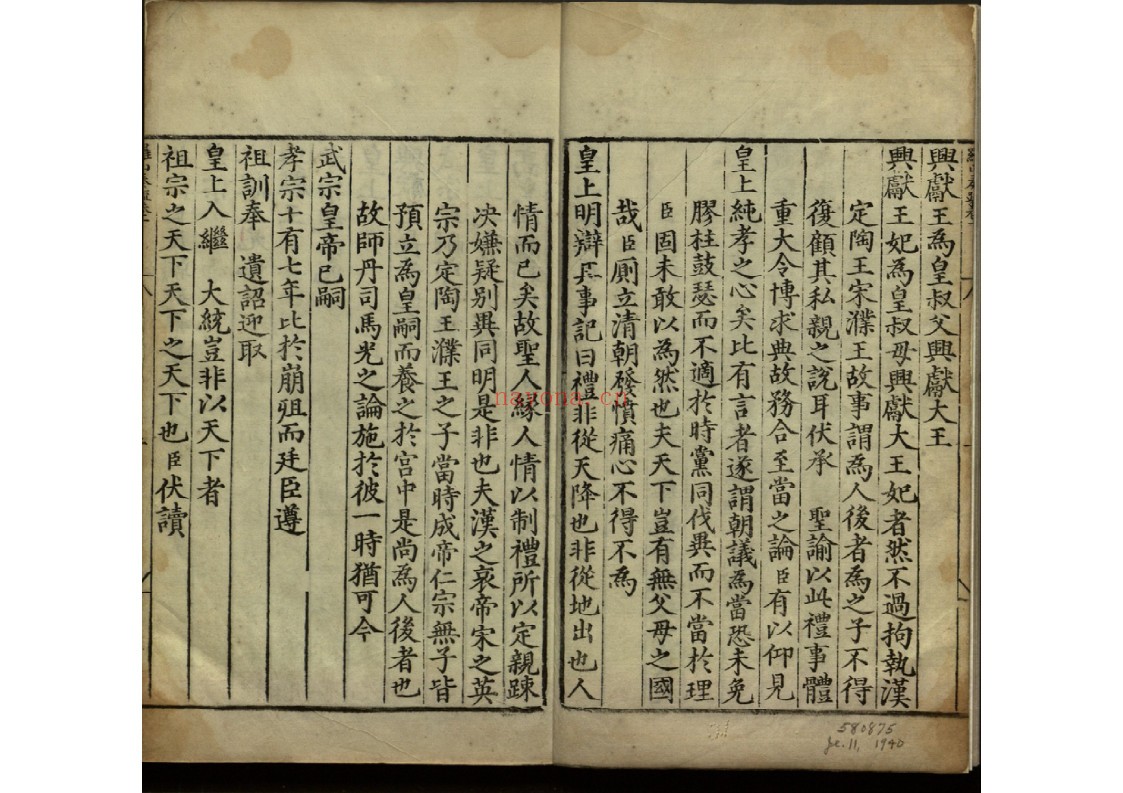 興獻王為皇叔父興獻大王
興獻王妃為皇叔母興獻大王妃者然不過拘執漢
定陶王宋濮王故事謂為人後者為之子不得
復顧其私親之說耳伏承 聖諭以此禮事體
重大令博求典故務合至當之論臣有以仰見
皇上純孝之心矣比有言者遂謂朝議為當恐未免
膠柱鼓瑟而不適於時黨同伐異而不當於理
臣固未敢以為然也夫天下豈有無父母之國
哉臣厠立清朝發憤痛心不得不為
皇上明辯其事記曰禮非從天降也非從地出也人
情而已矣故聖人緣人情以制禮所以定親踈
决嫌疑别異同明是非也夫漢之哀帝宋之英
宗乃定陶王濮王之子當時成帝仁宗無子皆
預立為皇嗣而養之於宮中是尚為人後者也
故師丹司馬光之論施於彼一時猶可今
武宗皇帝已嗣
孝宗十有七年比於崩殂而廷臣遵
祖訓奉 遺詔迎取
皇上入繼 大統豈非以天下者
祖宗之天下天下之天下也臣伏讀
nayona.cn
580875
Je. 11, 1940